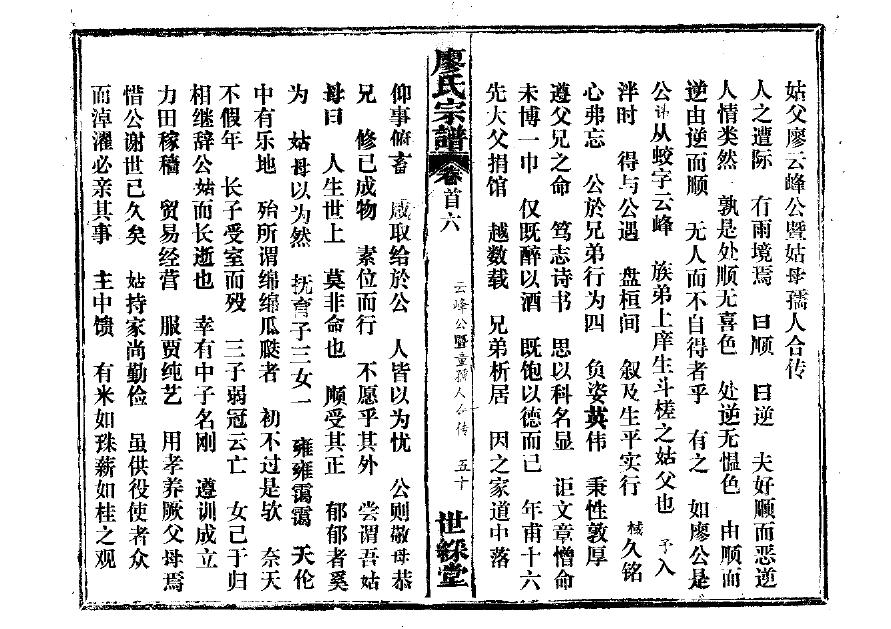 姑父廖云峰公暨姑母孺人合传
人之遭际 有雨境焉 曰顺 曰逆 夫好顺而恶逆
人情类然 孰是处顺无喜色 处逆无愠色 由顺而
逆由逆而顺 无人而不自得者乎 有之 如廖公是
公讳从蛟字云峰 族弟上庠生斗槎之姑父也 予入
泮时 得与公遇 盘桓间 叙及生平实行 椷久铭
心弗忘 公於兄弟行为四 负姿英伟 秉性敦厚
遵父兄之命 笃志诗书 思以科名显 讵文章憎命
未博一巾 仅既醉以酒 既饱以德而已 年甫十六
先大父捐馆 越数载 兄弟析居 因之家道中落
廖氏宗譜 卷首六 云峰公暨童孺人合传 五十 世綵堂
仰事俯畜 咸取给於公 人皆以为忧 公则敬母恭
兄 修已成物 素位而行 不愿乎其外 尝谓吾姑
母曰 人生世上 莫非命也 顺受其正 郁郁者奚
为 姑母以为然 抚育子三女一 雍雍霭霭 天伦
中有乐地 殆所谓绵绵瓜瓞者 初不过是欤 奈天
不假年 长子受室而殁 三子弱冠云亡 女己于归
相继辞公姑而长逝也 幸有中子名刚 遵训成立
力田稼穑 贸易经营 服贾纯艺 用孝养厥父母焉
惜公谢世已久矣 姑持家尚勤俭 虽供役使者众
而淖濯必亲其事 主中馈 有米如珠薪如桂之观